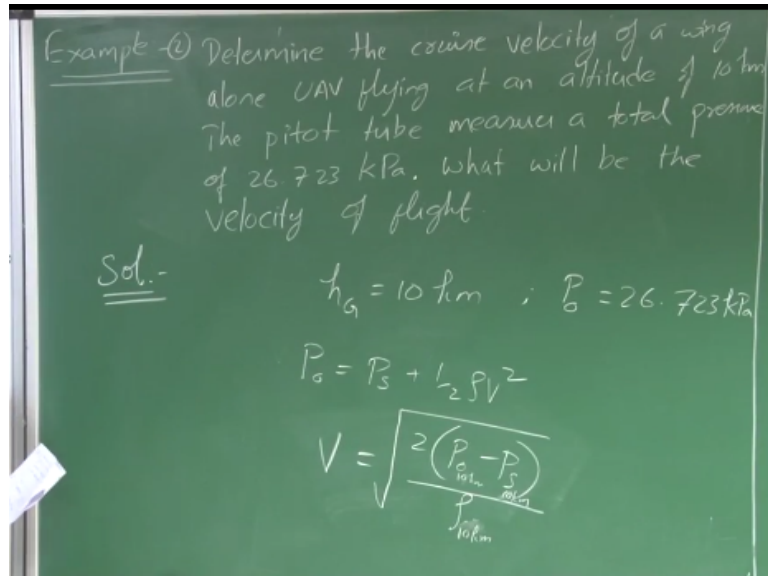 Example-② Determine the cruise velocity of a wing
alone UAV flying at an altitude of 10 km
The pitot tube measures a total pressure
of 26.723 kPa. what will be the
velocity of flight.
Sol.-
h_G = 10 km ; P_0 = 26.723 kPa
P_0 = P_S + 1/2 ρV²
V = √(2(P_0 10km - P_S 10km) / ρ_10km)